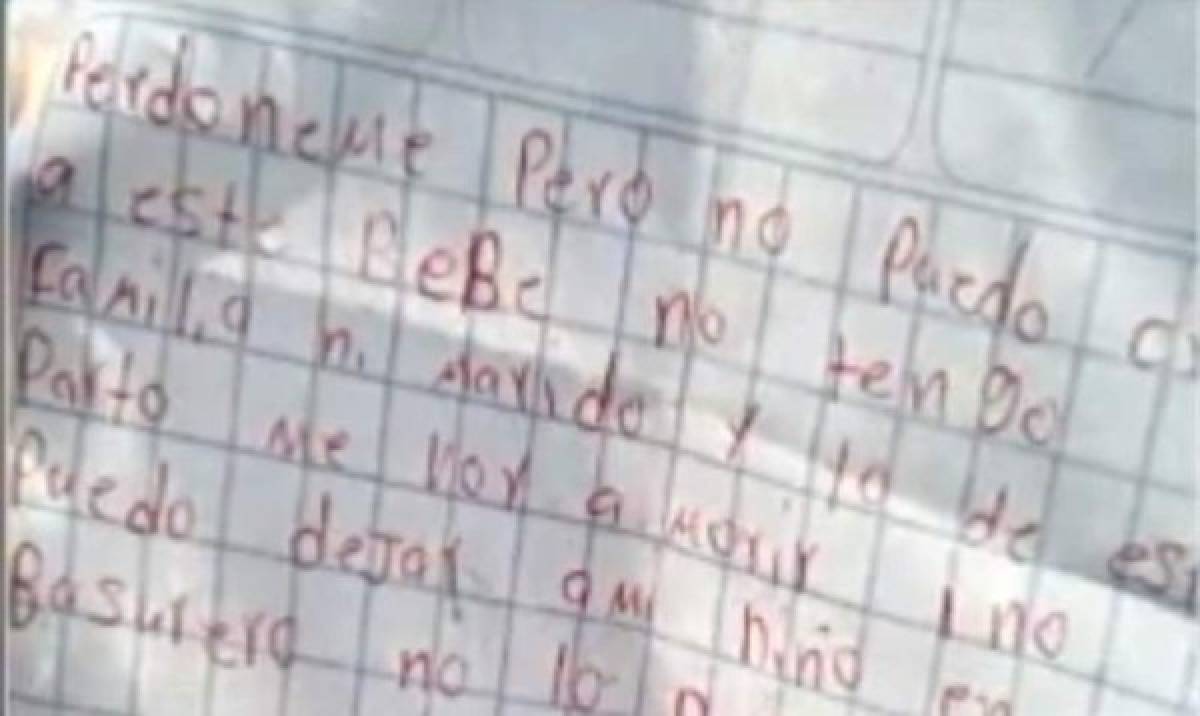 Perdoneme Pero no Puedo
a este BeBe no tengo
Familia ni marido y ya de
Parto me voy a morir i no
Puedo dejar ami niño en
Basurero no lo